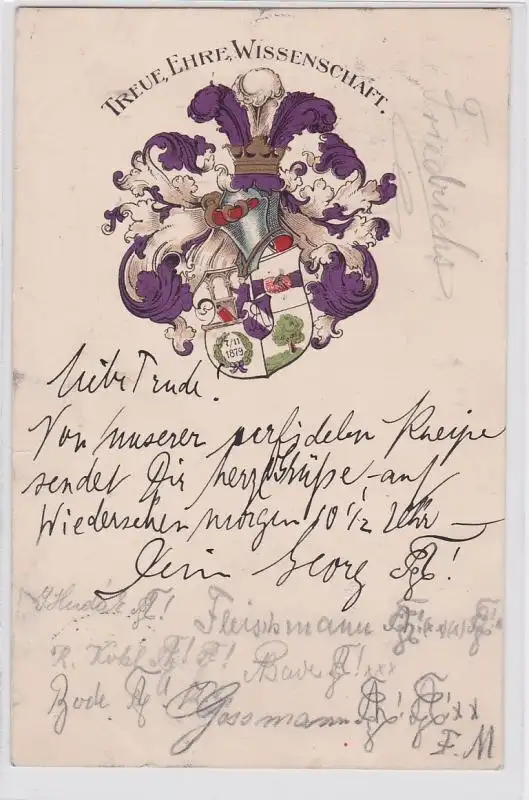 TREUE, EHRE, WISSENSCHAFT.
Friedrichs
7/11
1879
Liebe Trude!
Von unserer perfidelen Kneipe
sendet Dir herzl. Grüße – auf
Wiedersehen morgen 10 1/2 Uhr –
Dein Georg
Fleischmann
R.
Bode
Gossmann
F. M